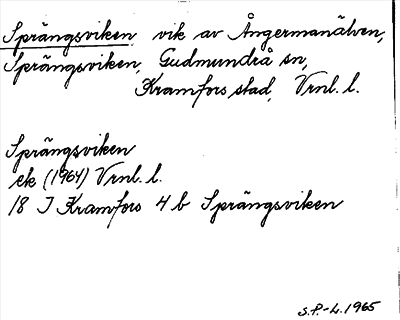 Sprängsviken vik av Ångermanälven,
Sprängsviken, Gudmundrå sn,
Kramfors stad, Vrnl. l.
Sprängsviken
ek (1964) Vrnl. l.
18 J Kramfors 4 b Sprängsviken
S.P.-L. 1965